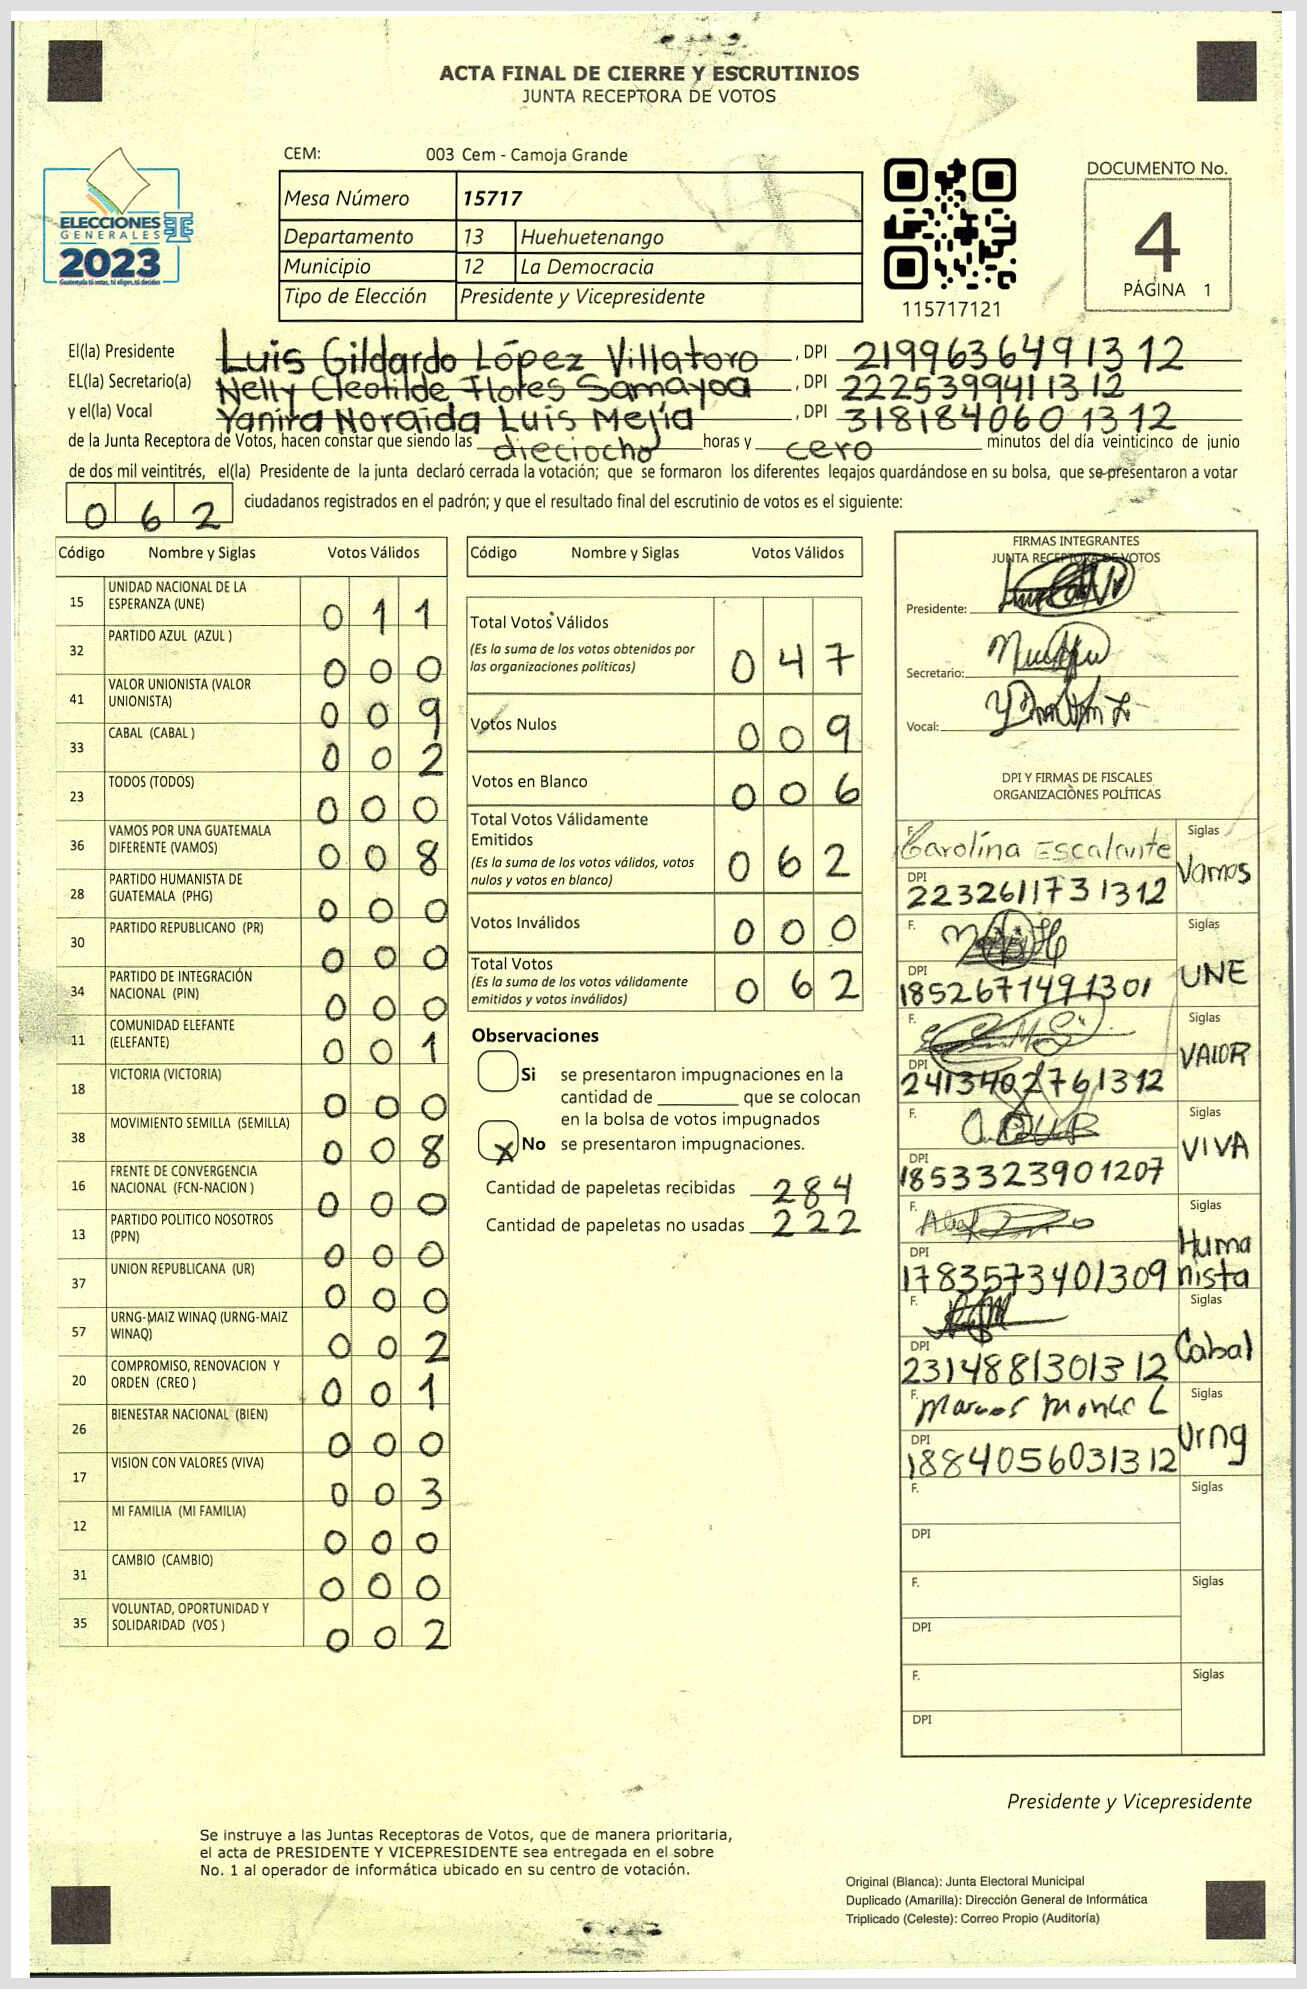 ACTA FINAL DE CIERRE Y ESCRUTINIOS
JUNTA RECEPTORA DE VOTOS
CEM: 003 Cem - Camoja Grande
ELECCIONES
GENERALES
2023
Guatemala tú votas, tú eliges, tú decides
Mesa Número 15717
Departamento 13 Huehuetenango
Municipio 12 La Democracia
Tipo de Elección Presidente y Vicepresidente
115717121
DOCUMENTO No.
4
PÁGINA 1
El(la) Presidente Luis Gildardo López Villatoro , DPI 2199636491312
EL(la) Secretario(a) Nelly Cleotilde Flores Samayoa , DPI 2225399411312
y el(la) Vocal Yanira Noraida Luis Mejía , DPI 3181840601312
de la Junta Receptora de Votos, hacen constar que siendo las dieciocho horas y cero minutos del día veinticinco de junio
de dos mil veintitrés, el(la) Presidente de la junta declaró cerrada la votación; que se formaron los diferentes legajos quardándose en su bolsa, que se presentaron a votar
062 ciudadanos registrados en el padrón; y que el resultado final del escrutinio de votos es el siguiente:
Código Nombre y Siglas Votos Válidos
15 UNIDAD NACIONAL DE LA ESPERANZA (UNE) 011
32 PARTIDO AZUL (AZUL ) 000
41 VALOR UNIONISTA (VALOR UNIONISTA) 009
33 CABAL (CABAL ) 002
23 TODOS (TODOS) 000
36 VAMOS POR UNA GUATEMALA DIFERENTE (VAMOS) 008
28 PARTIDO HUMANISTA DE GUATEMALA (PHG) 000
30 PARTIDO REPUBLICANO (PR) 000
34 PARTIDO DE INTEGRACIÓN NACIONAL (PIN) 000
11 COMUNIDAD ELEFANTE (ELEFANTE) 001
18 VICTORIA (VICTORIA) 000
38 MOVIMIENTO SEMILLA (SEMILLA) 008
16 FRENTE DE CONVERGENCIA NACIONAL (FCN-NACION ) 000
13 PARTIDO POLITICO NOSOTROS (PPN) 000
37 UNION REPUBLICANA (UR) 000
57 URNG-MAIZ WINAQ (URNG-MAIZ WINAQ) 002
20 COMPROMISO, RENOVACION Y ORDEN (CREO ) 001
26 BIENESTAR NACIONAL (BIEN) 000
17 VISION CON VALORES (VIVA) 003
12 MI FAMILIA (MI FAMILIA) 000
31 CAMBIO (CAMBIO) 000
35 VOLUNTAD, OPORTUNIDAD Y SOLIDARIDAD (VOS ) 002
Código Nombre y Siglas Votos Válidos
Total Votos Válidos 047
(Es la suma de los votos obtenidos por
las organizaciones políticas)
Votos Nulos 009
Votos en Blanco 006
Total Votos Válidamente
Emitidos 062
(Es la suma de los votos válidos, votos
nulos y votos en blanco)
Votos Inválidos 000
Total Votos 062
(Es la suma de los votos válidamente
emitidos y votos inválidos)
Observaciones
Si se presentaron impugnaciones en la
cantidad de ________ que se colocan
en la bolsa de votos impugnados
X No se presentaron impugnaciones.
Cantidad de papeletas recibidas 284
Cantidad de papeletas no usadas 222
FIRMAS INTEGRANTES
JUNTA RECEPTORA DE VOTOS
Presidente:
Secretario:
Vocal:
DPI Y FIRMAS DE FISCALES
ORGANIZACIONES POLÍTICAS
F. Carolína Escalante Siglas Vamos
DPI 2232611731312
F. Siglas UNE
DPI 1852671491301
F. Siglas VALOR
DPI 2413402761312
F. Siglas VIVA
DPI 1853323901207
F. Siglas Humanista
DPI 1783573401309
F. Siglas Cabal
DPI 2314881301312
F. Siglas Urng
DPI 1884056031312
F. Siglas
DPI
F. Siglas
DPI
F. Siglas
DPI
Presidente y Vicepresidente
Se instruye a las Juntas Receptoras de Votos, que de manera prioritaria,
el acta de PRESIDENTE Y VICEPRESIDENTE sea entregada en el sobre
No. 1 al operador de informática ubicado en su centro de votación.
Original (Blanca): Junta Electoral Municipal
Duplicado (Amarilla): Dirección General de Informática
Triplicado (Celeste): Correo Propio (Auditoría)